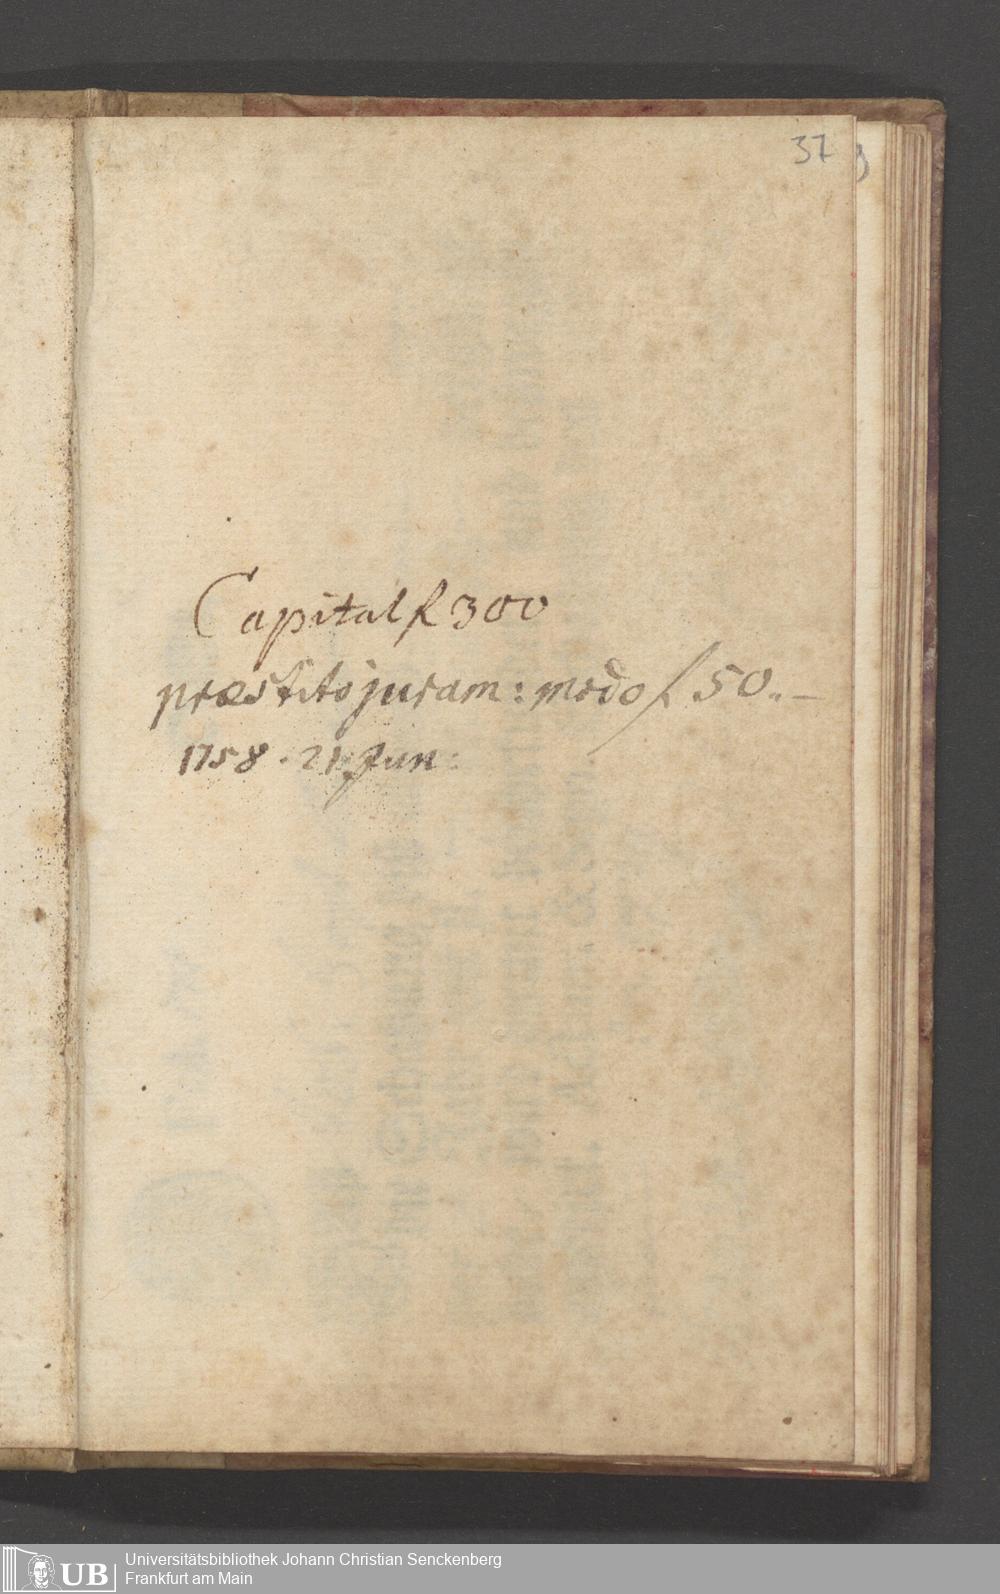 37
Capital f 300
præstito juram: modo f 50. –
1758. 21. Jun:
UB
Universitätsbibliothek Johann Christian Senckenberg
Frankfurt am Main